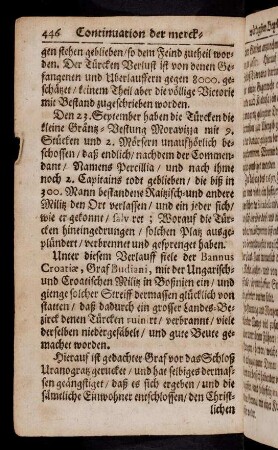 446 Continuation der merck-
gen stehen geblieben / so dem Feind zutheil wor-
den. Der Türcken Verlust ist von denen Ge-
fangenen und Uberlauffern gegen 8000. ge-
schätzet / keinem Theil aber die völlige Victorie
mit Bestand zugeschrieben worden.
Den 23. September haben die Türcken die
kleine Gräntz-Vestung Moravizza mit 9.
Stücken und 2. Mörsern unaufhörlich be-
schossen / daß endlich / nachdem der Commen-
dant / Namens Percillia / und nach ihme
noch 2. Capitains todt geblieben / die biß in
300. Mann bestandene Raitzisch-und andere
Militz den Ort verlassen / und ein jeder sich /
wie er gekonnt / salviret; Worauf die Tür-
cken hineingedrungen / solchen Platz ausge-
plündert / verbrennet und gesprenget haben.
Unter diesem Verlauff fiele der Bannus
Croatiæ, Graf Budiani, mit der Ungarisch-
und Croatischen Militz in Bosnien ein / und
gienge solcher Streiff dermassen glücklich von
statten / daß dadurch ein grosser Landes-Be-
zirck denen Türcken ruinirt / verbrannt / viele
derselben niedergesäbelt / und gute Beute ge-
machet worden.
Hierauf ist gedachter Graf vor das Schloß
Uranogratz gerucket / und hat selbiges dermas-
sen geängstiget / daß es sich ergeben / und die
sämtliche Einwohner entschlossen / den Christ-
lichen